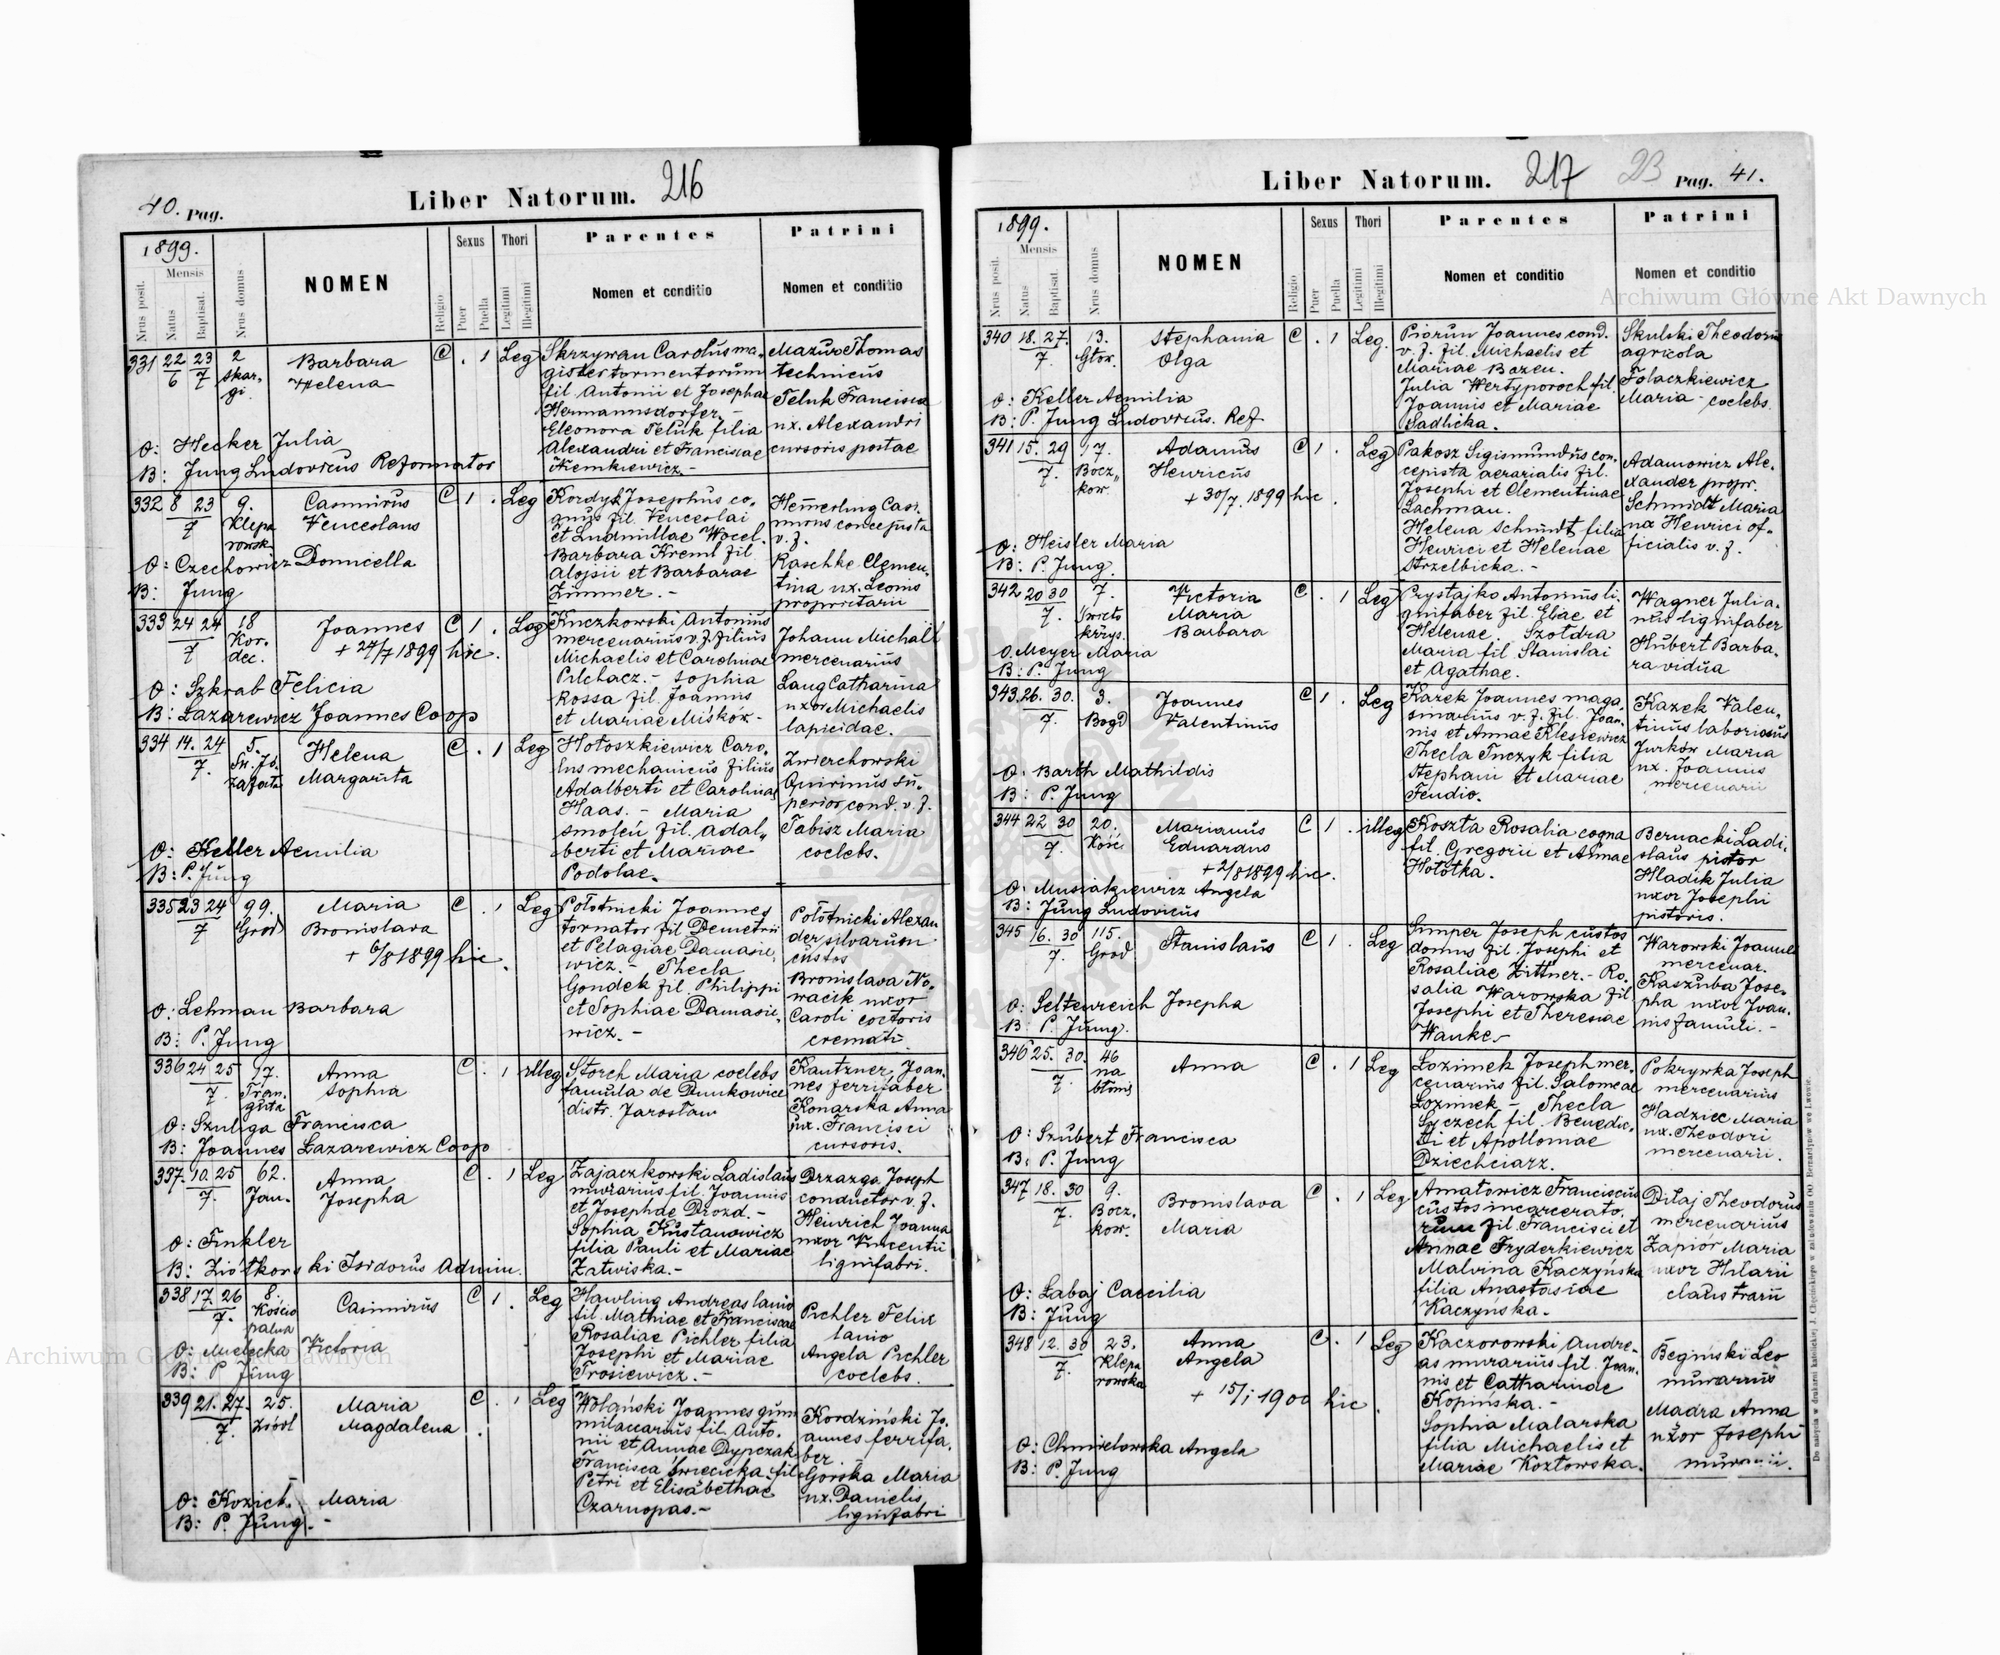 40. Pag.
Liber Natorum. 216
1899.
Mensis
Nrus posit.
Natus
Baptisat.
Nrus domus
NOMEN
Religio
Sexus
Puer
Puella
Thori
Legitimi
Illegitimi
Parentes
Nomen et conditio
Patrini
Nomen et conditio
331 22/6 23/7
2
Skar-
gi.
Barbara
Helena
C . 1 Leg
Skrzywan Carolus ma-
gister tormentorum
fil Antonii et Josephae
Hermannsdorfer -
Eleonora Teluk filia
Alexandri et Franciscae
Mazur Thomas
technicus
Teluk Francisca
ux. Alexandri
cursoris postae
O: Hecker Julia
B: Jung Ludovicus Reformator
332 8 23
7
9.
Klepa
rowsk
Casimirus
Venceslaus
C 1 . Leg
Kordyk Josephus co-
quus fil. Venceslai
et Ludmillae Wocel.
Barbara Kreml fil
Alojsii et Barbarae
Zimmer. -
Hemerling Casi-
mirus concepista
v. f.
Raschke Clemen-
tina ux. Leonis
proprietarii
O: Czechowicz Domicella
B: Jung
333 24 24
7
18
Kor.
dec.
Joannes
+ 24/7 1899 hic.
C 1 . Leg
Kuczkowski Antonius
mercenarius v. f. filius
Michaelis et Carolinae
Pilchacz. - Sophia
Kossa fil. Joannis
et Mariae Miśków -
Johann Michaël
mercenarius
Lang Catharina
uxor Michaelis
lapicidae.
O: Szkrab Felicia
B: Lazarewicz Joannes Coop
334 14. 24
7.
5.
Helena
Margarita
C . 1 Leg
Hołoszkiewicz Caro-
lus mechanicus filius
Adalberti et Carolinae
Haas. - Maria
Smoleń fil. Adal-
berti et Mariae
Podolae.
Zwierchowski
Quirinus su-
perior cond. v. f.
Tabisz Maria
coelebs.
O: Keller Aemilia
B: P. Jung
335 23 24
7
99.
Grod
Maria
Bronislava
+ 6/8 1899 hic.
C . 1 Leg
Połotnicki Joannes
tornator fil Demetrii
et Pelagiae Damasie-
wicz. - Thecla
Gondek fil Philippi
et Sophiae Damasie-
wicz. -
Połotnicki Alexan
der silvarum
custos
Bronislava No-
wacik uxor
Caroli coctoris
cremati.
O: Lehman Barbara
B: P. Jung
336 24 25
7.
17.
Anna
Sophia
C . 1 illeg
Storch Maria coelebs
famula de Dunkowice
distr. Jarosław
Kautzner Joan-
nes ferrifaber
Konarska Anna
ux. Francisci
cursoris.
O: Szuliga Francisca
B: Joannes Lazarewicz Coop
337. 10. 25
7.
62.
Jan.
Anna
Josepha
C . 1 Leg
Zajaczkowski Ladislaus
murarius fil. Joannis
et Josephae Drozd. -
Sophia Kustanowicz
filia Pauli et Mariae
Zatwiska. -
Drzazga Joseph
conductor v. f.
Heinrich Joanna
uxor Vincentii
lignifabri.
O: Finkler
B: Ziółkowski Isidorus Admin.
338 17. 26
7.
8.
Kościo
palna
Casimirus
C 1 . Leg
Hawling Andreas lanio
fil. Mathiae et Franciscae
Rosaliae Pichler filia
Josephi et Mariae
Trosiewicz. -
Pichler Felix
lanio
Angela Pichler
coelebs.
O: Mielecka Victoria
B: P Jung
339 21. 27.
7.
25.
Maria
Magdalena
C . 1 Leg
Wolański Joannes gum
milaccarius fil. Anto-
nii et Annae Dypczak
Francisca Święcicka fil
Petri et Elisabethae
Czarnopas. -
Kordziński Jo-
annes ferrifa-
ber. -
Górska Maria
ux. Danielis
lignifabri
O: Kozich Maria
B: P. Jung. -
Liber Natorum. 217 23 Pag. 41.
1899.
Mensis
Nrus posit.
Natus
Baptisat.
Nrus domus
NOMEN
Religio
Sexus
Puer
Puella
Thori
Legitimi
Illegitimi
Parentes
Nomen et conditio
Patrini
Nomen et conditio
340 18. 27.
7.
13.
Głow.
Stephania
Olga
C . 1 Leg.
Piorun Joannes cond.
v. f. fil. Michaelis et
Mariae Bazeu.
Julia Wertyporoch fil
Joannis et Mariae
Sadlicka.
Skulski Theodorus
agricola
Folaczkiewicz
Maria - coelebs.
O: Keller Aemilia
B: P. Jung Ludovicus. Ref
341 15. 29
7.
17.
Bocz-
kow.
Adamus
Henricus
+ 30/7. 1899 hic.
C 1 . Leg
Pakosz Sigismundus con-
cepista aerarialis fil.
Josephi et Clementinae
Lachman.
Helena Schmidt filia
Henrici et Helenae
Strzelbicka. -
Adamowicz Ale-
xander propr.
Schmidt Maria
na Henrici of-
ficialis v. f.
O: Heisler Maria
B: P. Jung.
342 20 30
7.
7.
Victoria
Maria
Barbara
C . 1 Leg
Czystajko Antonius li-
gnifaber fil Eliae et
Helenae. Szołdra
Maria fil. Stanislai
et Agathae.
Wagner Julia-
nus lignifaber
Hubert Barba-
ra vidua
O. Meyer Maria
B: P. Jung
343. 26. 30.
7.
3.
Bogd
Joannes
Valentinus
C 1 . Leg
Karek Joannes maga
sinarius v. f. fil. Joan-
nis et Annae Klesiewicz
Thecla Tuczyk filia
Stephani et Mariae
Feudio.
Kazek Valen-
tinus laboriosus
Jurków Maria
ux. Joannis
mercenarii
O: Barth Mathildis
B: P. Jung
344 22 30
7.
20.
Kości
Marianus
Eduardus
+ 2/8 1899 hic.
C 1 . illeg
Koszta Rosalia cogna
fil. Gregorii et Annae
Hołotka.
Bernacki Ladi-
slaus pistor
Hladik Julia
uxor Josephi
pistoris.
O: Musiakiewicz Angela
B: Jung Ludovicus
345 16. 30
7.
115.
Grod
Stanislaus
C 1 . Leg
Simper Joseph custos
domus fil. Josephi et
Rosaliae Zittner. - Ro-
salia Warowska fil
Josephi et Theresiae
Wanke. -
Warowski Joannes
mercenar.
Kaszuba Jose-
pha uxor Joan-
nis famuli. -
O: Seltenreich Josepha
B: P. Jung.
346 25. 30.
7.
46
na
błonie
Anna
C . 1 Leg
Łozinek Joseph mer-
cenarius fil. Salomeae
Łozinek - Thecla
Syczech fil. Benedic-
ti et Apolloniae
Dziechciarz.
Pokrywka Joseph
mercenarius
Hadziec Maria
ux. Theodori
mercenarii.
O: Szubert Francisca
B: P. Jung
347 18. 30
7.
9.
Bocz.
kow.
Bronislava
Maria
C . 1 Leg
Amatowicz Franciscus
custos incarcerato-
rum fil. Francisci et
Annae Fryderkiewicz
Malvina Kaczyńska
filia Anastasiae
Kaczyńska. -
Diłaj Theodorus
mercenarius
Zapiór Maria
uxor Hilarii
claustrarii
O: Labaj Caecilia
B: Jung
348 12. 30
7.
23.
Klepa
rowska
Anna
Angela
+ 15/1 1900 hic.
C . 1 Leg
Kaczorowski Andre-
as murarius fil. Joan-
nis et Catharinae
Kopińska. -
Sophia Malarska
filia Michaelis et
Mariae Kozłowska.
Begiński Leo
murarius
Madra Anna
uxor Josephi
murarii.
O: Chmielowska Angela
B: P. Jung
Do nabycia w drukarni katolickiej J. Chęcińskiego w zabudowaniu OO. Bernardynów we Lwowie.
Archiwum Główne Akt Dawnych
Archiwum Główne Akt Dawnych